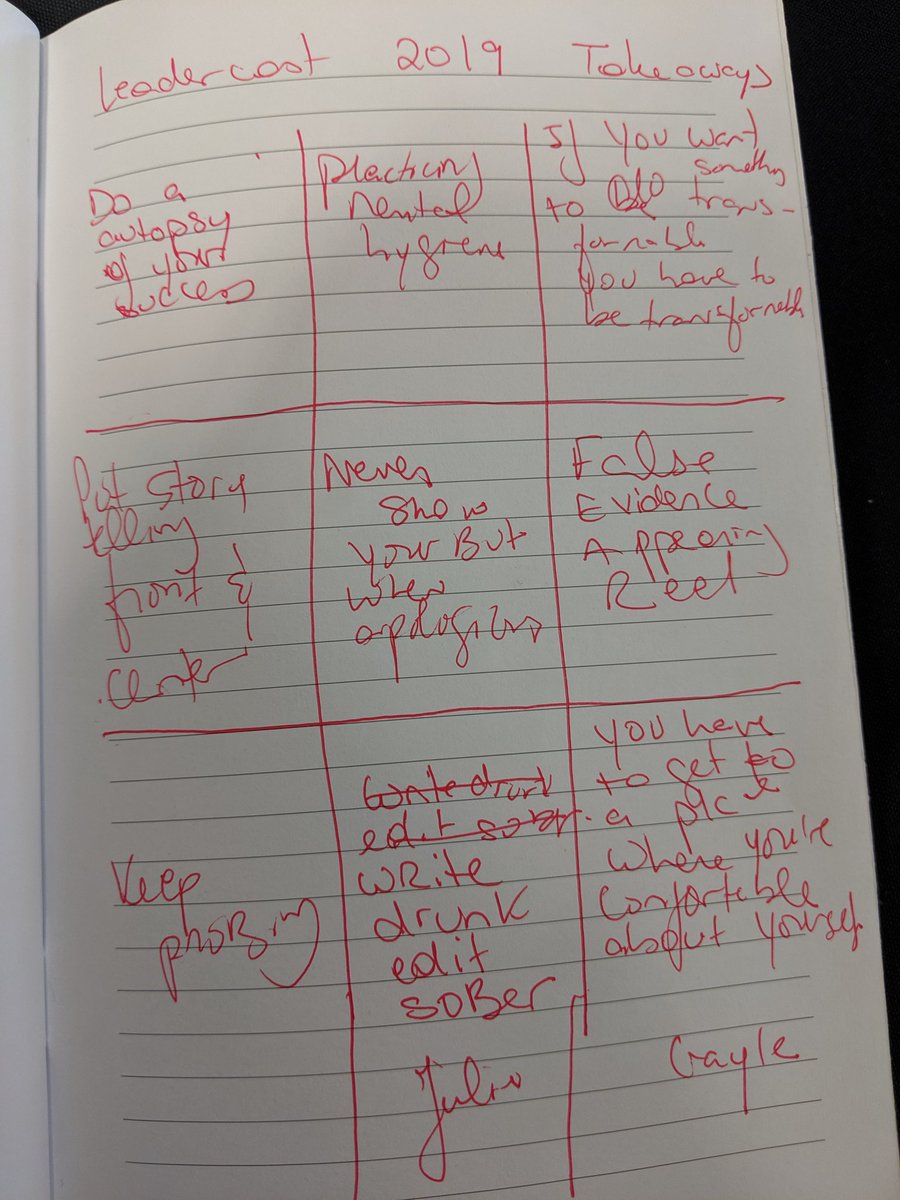 Leadercast 2019 Takeaways
Do a
autopsy
of your
success
Practicing
mental
hygiene
If you want
something
to trans-
formable
you have to
be transformable
Put story
telling
front &
center
Never
show
your But
when
apologizing
False
Evidence
Appearing
Real
Keep
probing
write drunk
edit sober.
write
drunk
edit
SOBer
Julio
you have
to get to
a place
where you're
comfortable
about yourself
Gayle